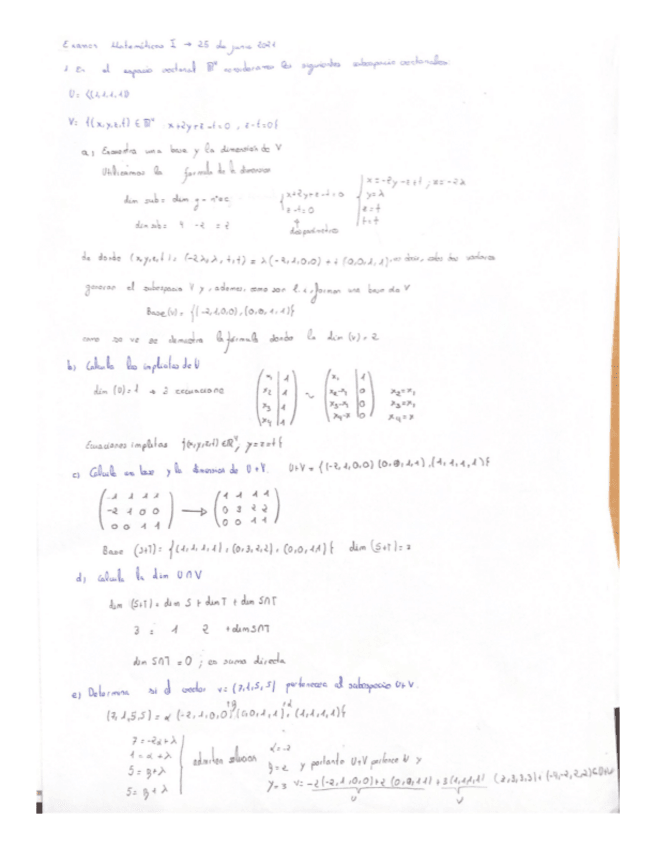 Examen Matemáticas I → 25 de junio 2021
1 En el espacio vectorial ℝ⁴ consideramos los siguientes subespacios vectoriales
U = <(1,1,1,1)>
V = {(x,y,z,t) ∈ ℝ⁴ x+2y+z-t=0, z-t=0}
a) Encuentra una base y la dimensión de V
Utilizamos la fórmula de la dimensión
dim sub = dim
dim sub = 4 - 2 = 2
{ x+2y+z-t=0
z-t=0
{ x=-2y-z+t; x=-2λ
y=λ
z=t
t=t
de donde (x,y,z,t) = (-2λ,λ,t,t) = λ(-2,1,0,0) + t(0,0,1,1), es decir, estos dos vectores
generan el subespacio V y, además, como son l.i, forman una base de V
Base(v) = {(-2,1,0,0),(0,0,1,1)}
como se ve se demuestra la fórmula donde la dim (v) = 2
b) Calcula las implícitas de U
dim (U)=1 → 3 ecuaciones
(x₁ | 1
x₂ | 1
x₃ | 1
x₄ | 1) ~ (x₁ | 1
x₂-x₁ | 0
x₃-x₁ | 0
x₄-x | 0)
x₂=x₁
x₃=x₁
x₄=x
Ecuaciones implícitas {(x,y,z,t) ∈ ℝ⁴, y=z=t}
c) Calcula una base y la dimensión de U+V. U+V = {(-2,1,0,0)(0,0,1,1),(1,1,1,1)}
(1 1 1 1
-2 1 0 0
0 0 1 1) → (1 1 1 1
0 3 2 2
0 0 1 1)
Base (S+T) = {(1,1,1,1),(0,3,2,2),(0,0,1,1)} dim (S+T) = 3
d) Calcula la dim U∩V
dim (S+T) = dim S + dim T + dim S∩T
3 = 1 2 + dim S∩T
dim S∩T = 0; es suma directa
e) Determina si el vector v = (7,1,5,5) pertenece al subespacio U+V.
(7,1,5,5) = α(-2,1,0,0)+β(0,0,1,1)+λ(1,1,1,1)}
7=-2α+λ
1=α+λ
5=β+λ
5=β+λ
} admiten solución
α=-2
β=2 y por tanto U+V pertenece U y
γ=3 v= -2(-2,1,0,0)+2(0,0,1,1)+3(1,1,1,1) (3,3,3,3)+(-4,-2,2,2)∈U+V
U V